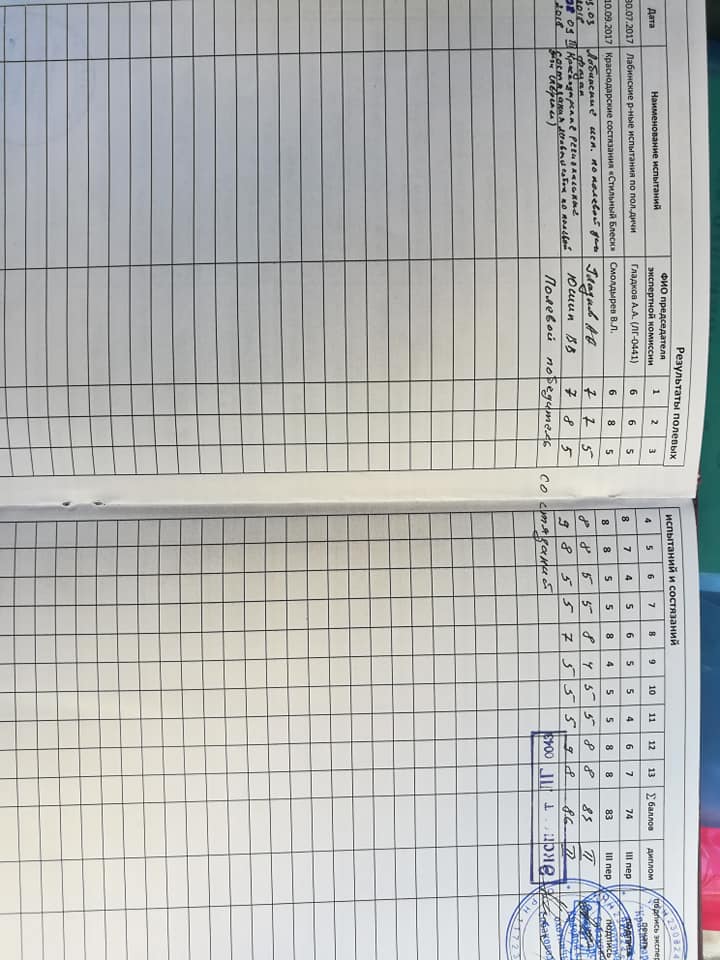 Результаты полевых испытаний и состязаний
Дата Наименование испытаний ФИО председателя экспертной комиссии 1 2 3 4 5 6 7 8 9 10 11 12 13 ∑ баллов диплом подпись
30.07.2017 Лабинские р-ные испытания по пол.дичи Гладков А.А. (ЛГ-0441) 6 6 5 8 7 4 5 6 5 5 4 6 7 74 III пер
10.09.2017 Краснодарские состязания «Стильный Блеск» Смолдырев В.Л. 6 8 5 8 8 5 5 8 4 5 5 8 8 83 III пер
03 2018 исп. по полевой 7 7 5 8 8 5 5 8 4 5 5 8 8 83 II
03 2018 Краснодарские региональные
состязания по полевой
Юшин ВВ 7 8 5 9 8 5 5 7 5 5 5 8 86 II
Полевой победитель состязаний
0043